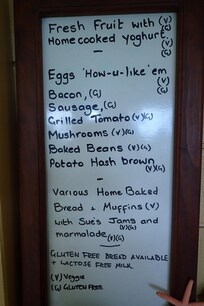 Fresh Fruit with (V)
Homecooked yoghurt (V)(G)
Eggs 'How-u-like' em (V)(G)
Bacon, (G)
Sausage, (G)
Grilled Tomato (V)(G)
Mushrooms (V)(G)
Baked Beans (V)(G)
Potato Hash brown (V)(G)
Various Home Baked
Bread + Muffins (V)
with Sue's Jams and (V)(G)
marmalade (V)(G)
GLUTEN FREE BREAD AVAILABLE
+ LACTOSE FREE MILK
(V) Veggie
(G) GLUTEN FREE